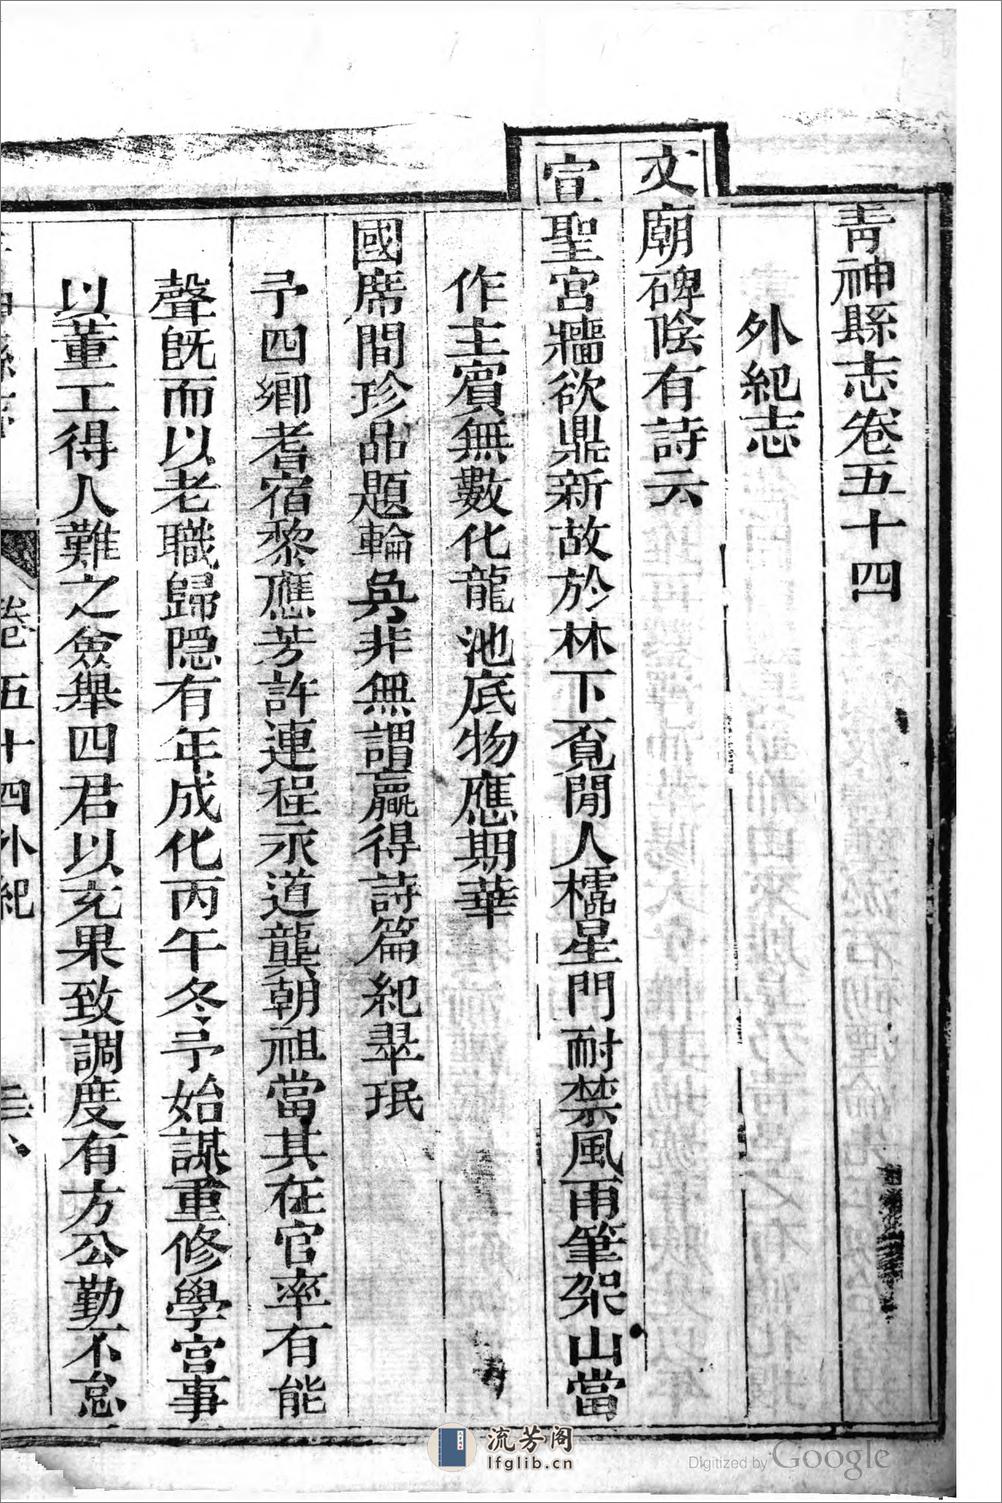 青神縣志卷五十四
外紀志
文廟碑陰有詩云
宣聖宮牆欲鼎新故於林下覔閒人櫺星門耐禁風雨筆架山當
作主賓無數化龍池底物應期華
國席間珍品題輪奐非無謂贏得詩篇紀翠珉
予四鄉耆宿黎應芳許連程永道龔朝祖當其在官率有能
聲旣而以老職歸隱有年成化丙午冬予始謀重修學宮事
以董工得人難之僉舉四君以充果致調度有方公勤不怠
卷五十四外紀
流芳阁
lfglib.cn
Digitized by Google